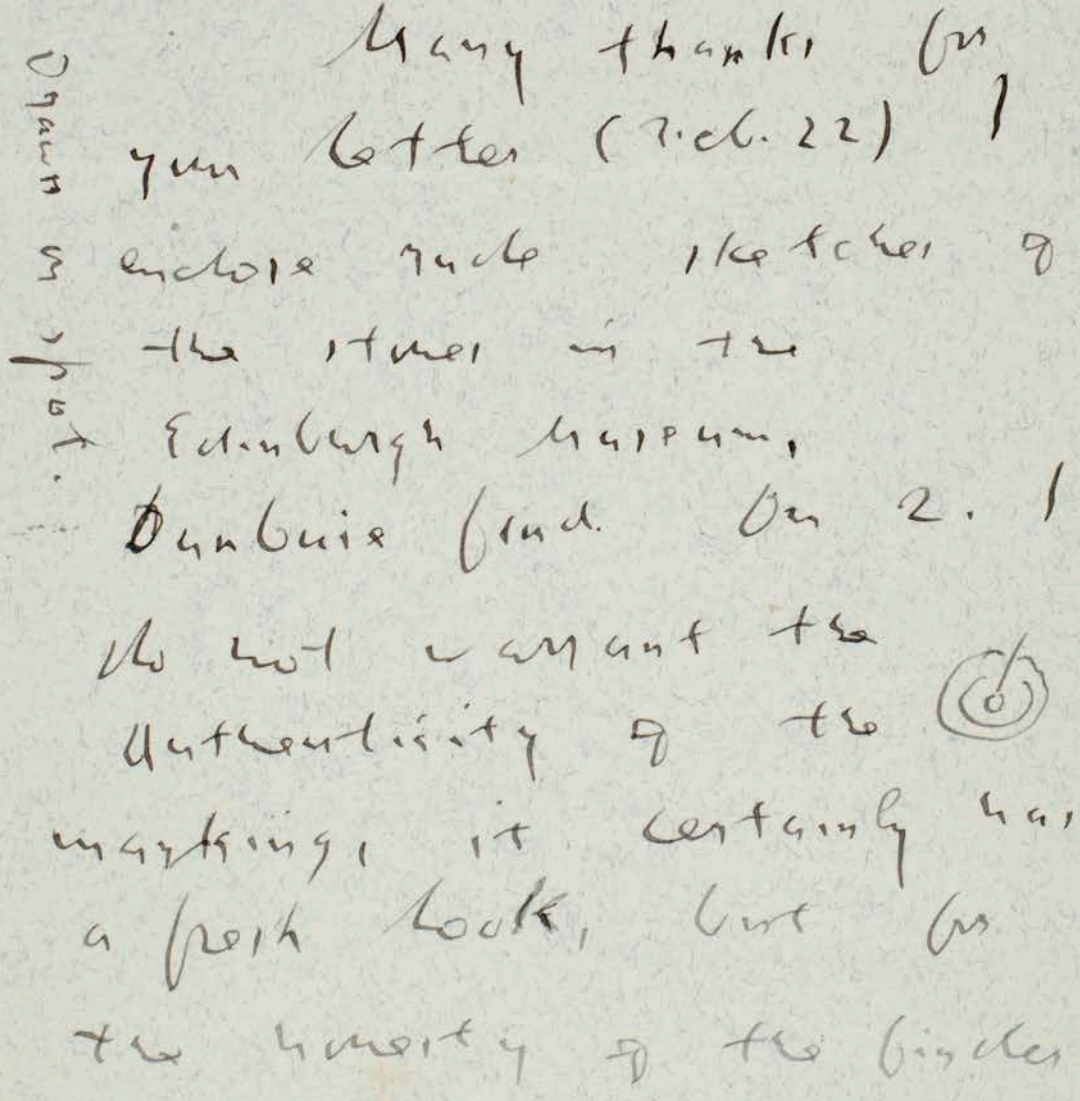 Many thanks for
your letter (Feb. 22) I
enclose rude sketches of
the stones in the
Edinburgh Museum,
Dunbuie find. On 2. I
do not warrant the
authenticity of the
marking, it certainly has
a fresh look, but for
the honesty of the finder
Drawn on spot.